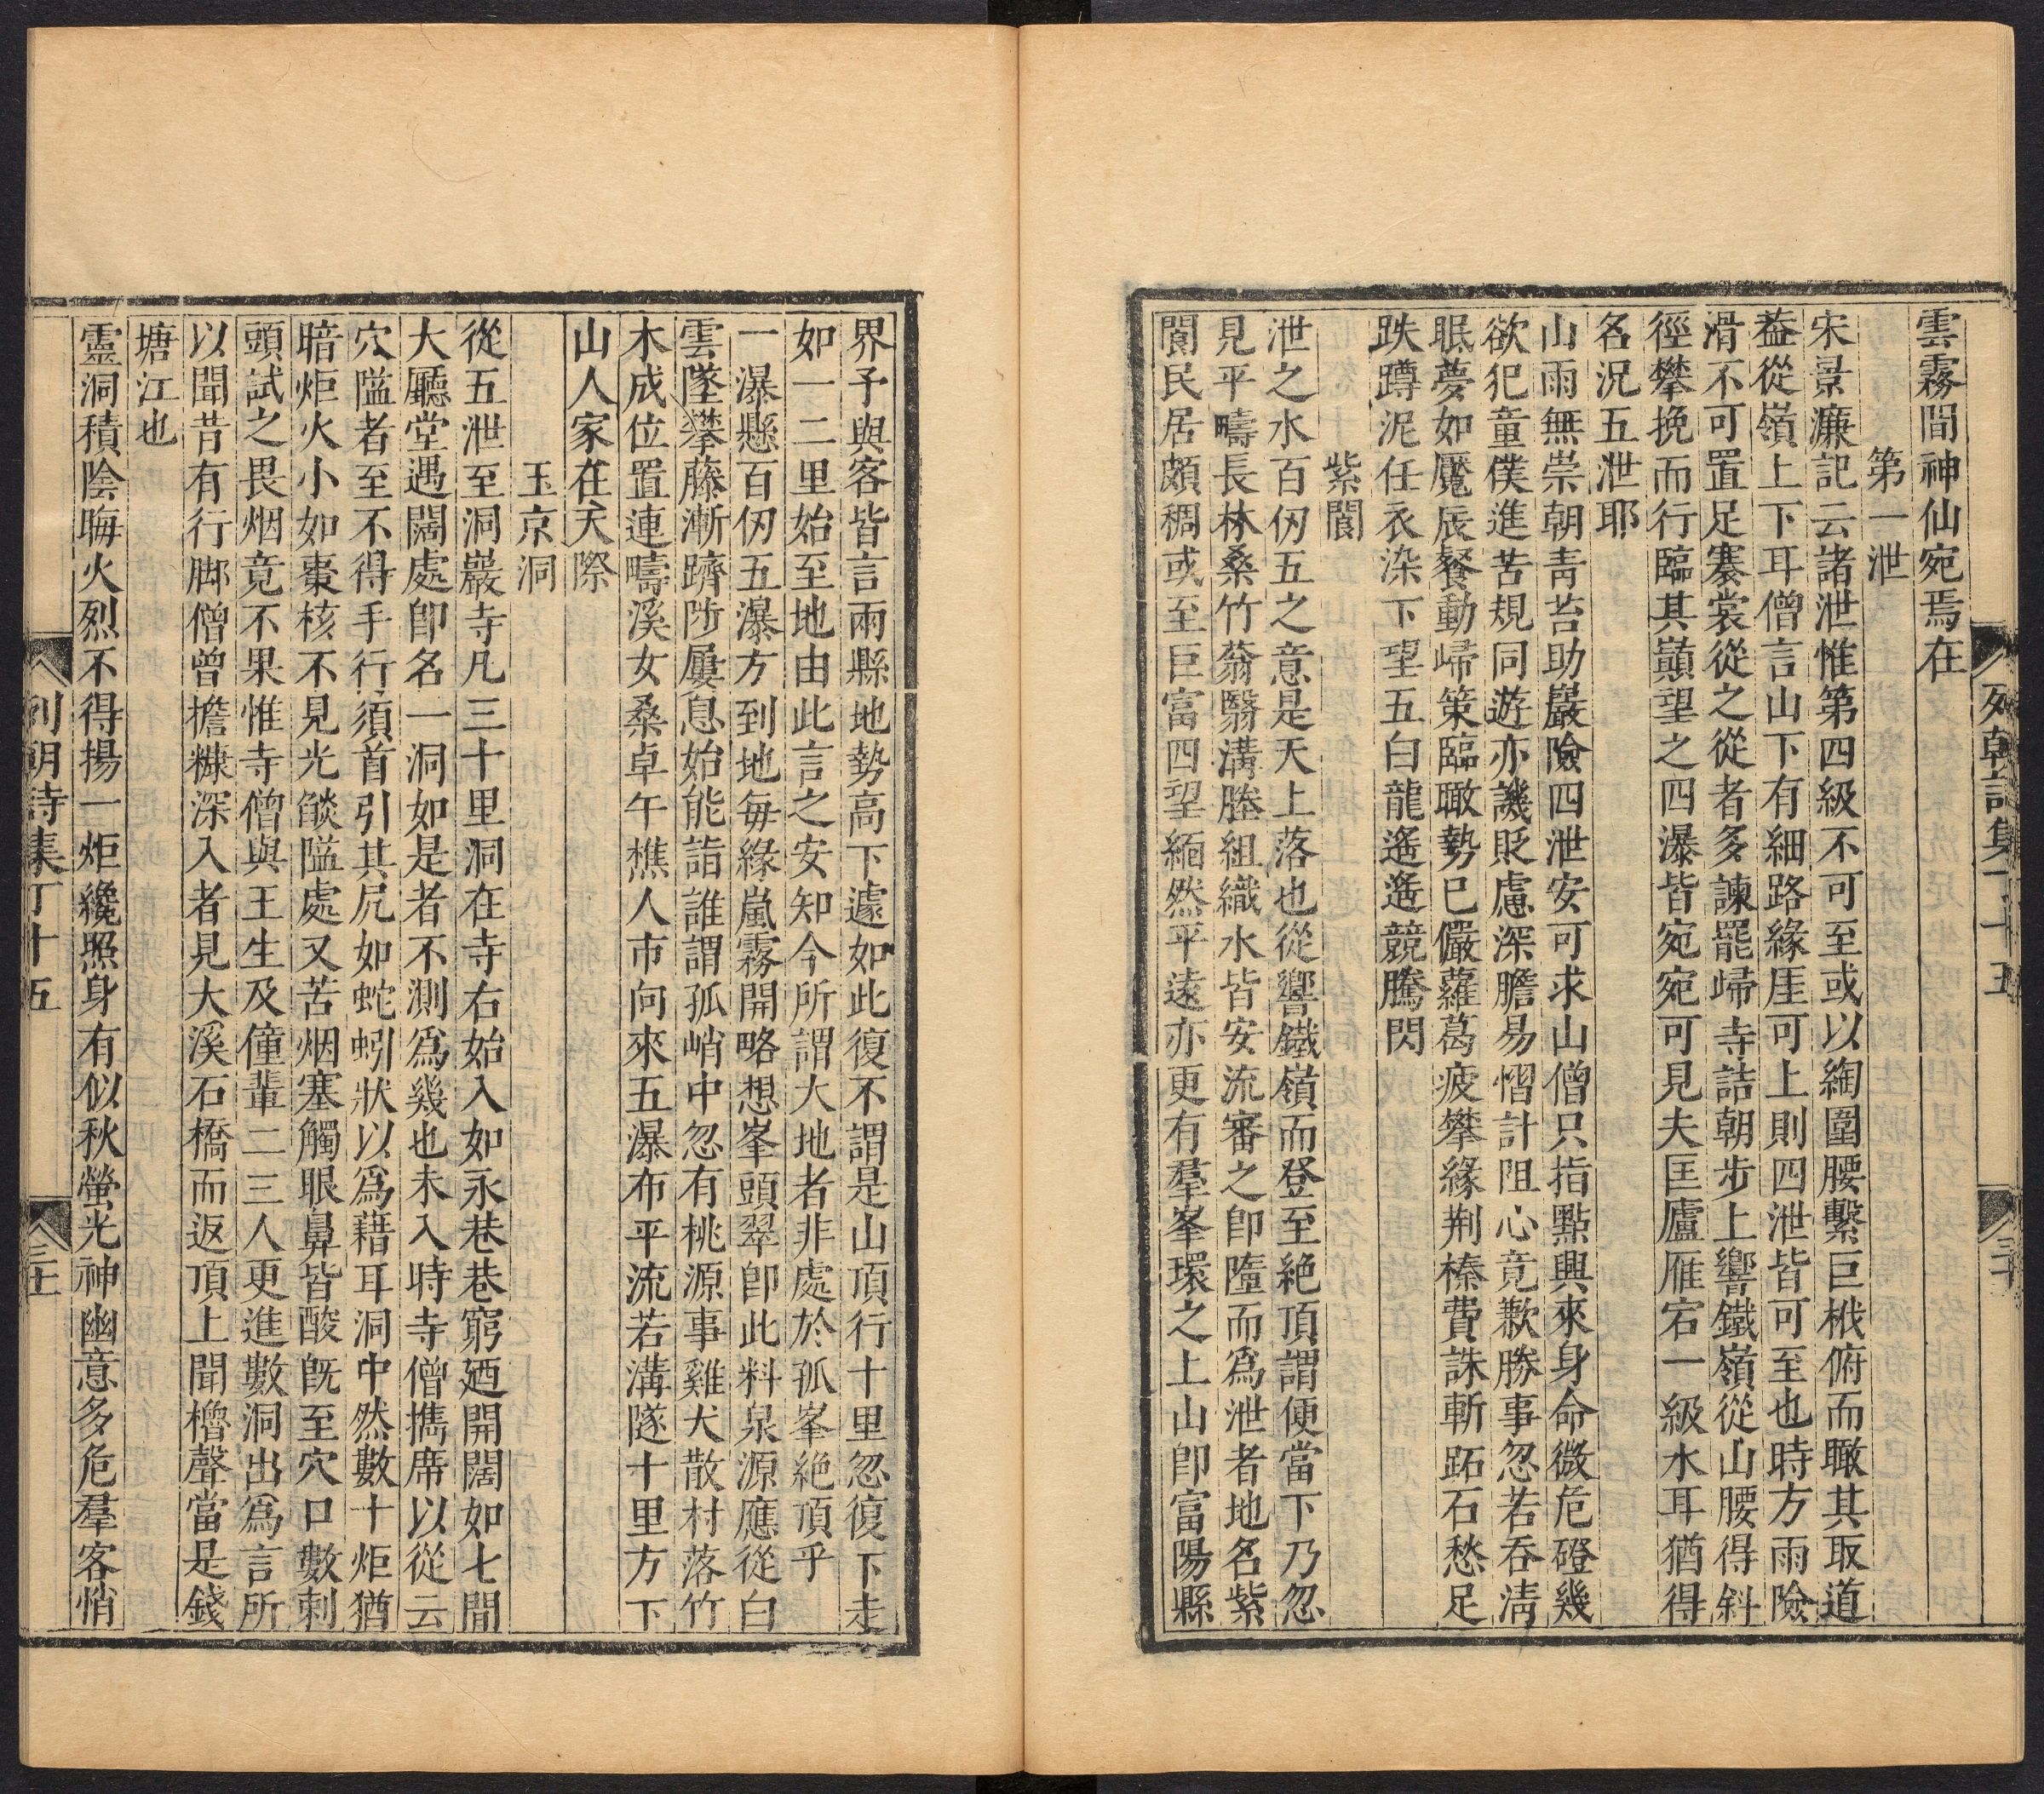 列朝詩集丁十五
三十
雲霧間神仙宛焉在
第一泄
宋景濂記云諸泄惟第四級不可至或以綯圍腰繫巨栰俯而瞰其取道
葢從嶺上下耳僧言山下有細路緣厓可上則四泄皆可至也時方雨險
滑不可置足褰裳從之從者多諫罷歸寺詰朝步上響鐵嶺從山腰得斜
徑攀挽而行臨其巔望之四瀑皆宛宛可見夫匡廬雁宕一級水耳猶得
名況五泄耶
山雨無崇朝青苔助巖險四泄安可求山僧只指點興來身命微危磴幾
欲犯童僕進苦規同遊亦譏貶慮深膽易慴計阻心竟歉勝事忽若吞淸
眠夢如魘辰餐動歸策臨瞰勢已儼蘿葛疲攀緣荆榛費誅斬跖石愁足
跌蹲泥任衣染下望五白龍遙遙競騰閃
紫閬
泄之水百仭五之意是天上落也從響鐵嶺而登至絶頂謂便當下乃忽
見平疇長林桑竹蓊翳溝塍組織水皆安流審之卽墮而爲泄者地名紫
閬民居頗稠或至巨富四望緬然平遠亦更有羣峯環之上山卽富陽縣
界予與客皆言兩縣地勢高下遽如此復不謂是山頂行十里忽復下走
如一二里始至地由此言之安知今所謂大地者非處於孤峯絶頂乎
一瀑懸百仭五瀑方到地每緣嵐霧開略想峯頭翠卽此料泉源應從白
雲墜攀藤漸躋陟屢息始能詣誰謂孤峭中忽有桃源事雞犬散村落竹
木成位置連疇溪女桑卓午樵人市向來五瀑布平流若溝隧十里方下
山人家在天際
玉京洞
從五泄至洞巖寺凡三十里洞在寺右始入如永巷巷窮廼開闊如七間
大廳堂遇闊處卽名一洞如是者不測爲幾也未入時寺僧擕席以從云
穴隘者至不得手行須首引其尻如蛇蚓狀以爲藉耳洞中然數十炬猶
暗炬火小如棗核不見光餤隘處又苦烟塞觸眼鼻皆酸旣至穴口數刺
頭試之畏烟竟不果惟寺僧與王生及僮輩二三人更進數洞出爲言所
以聞昔有行脚僧曾擔糠深入者見大溪石橋而返頂上聞櫓聲當是錢
塘江也
靈洞積陰晦火烈不得揚一炬纔照身有似秋螢光神幽意多危羣客悄
列朝詩集丁十五